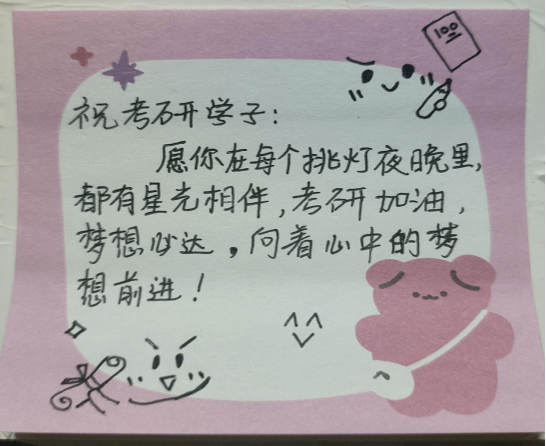 100
祝考研学子:
愿你在每个挑灯夜晚里,
都有星光相伴,考研加油,
梦想必达,向着心中的梦
想前进!